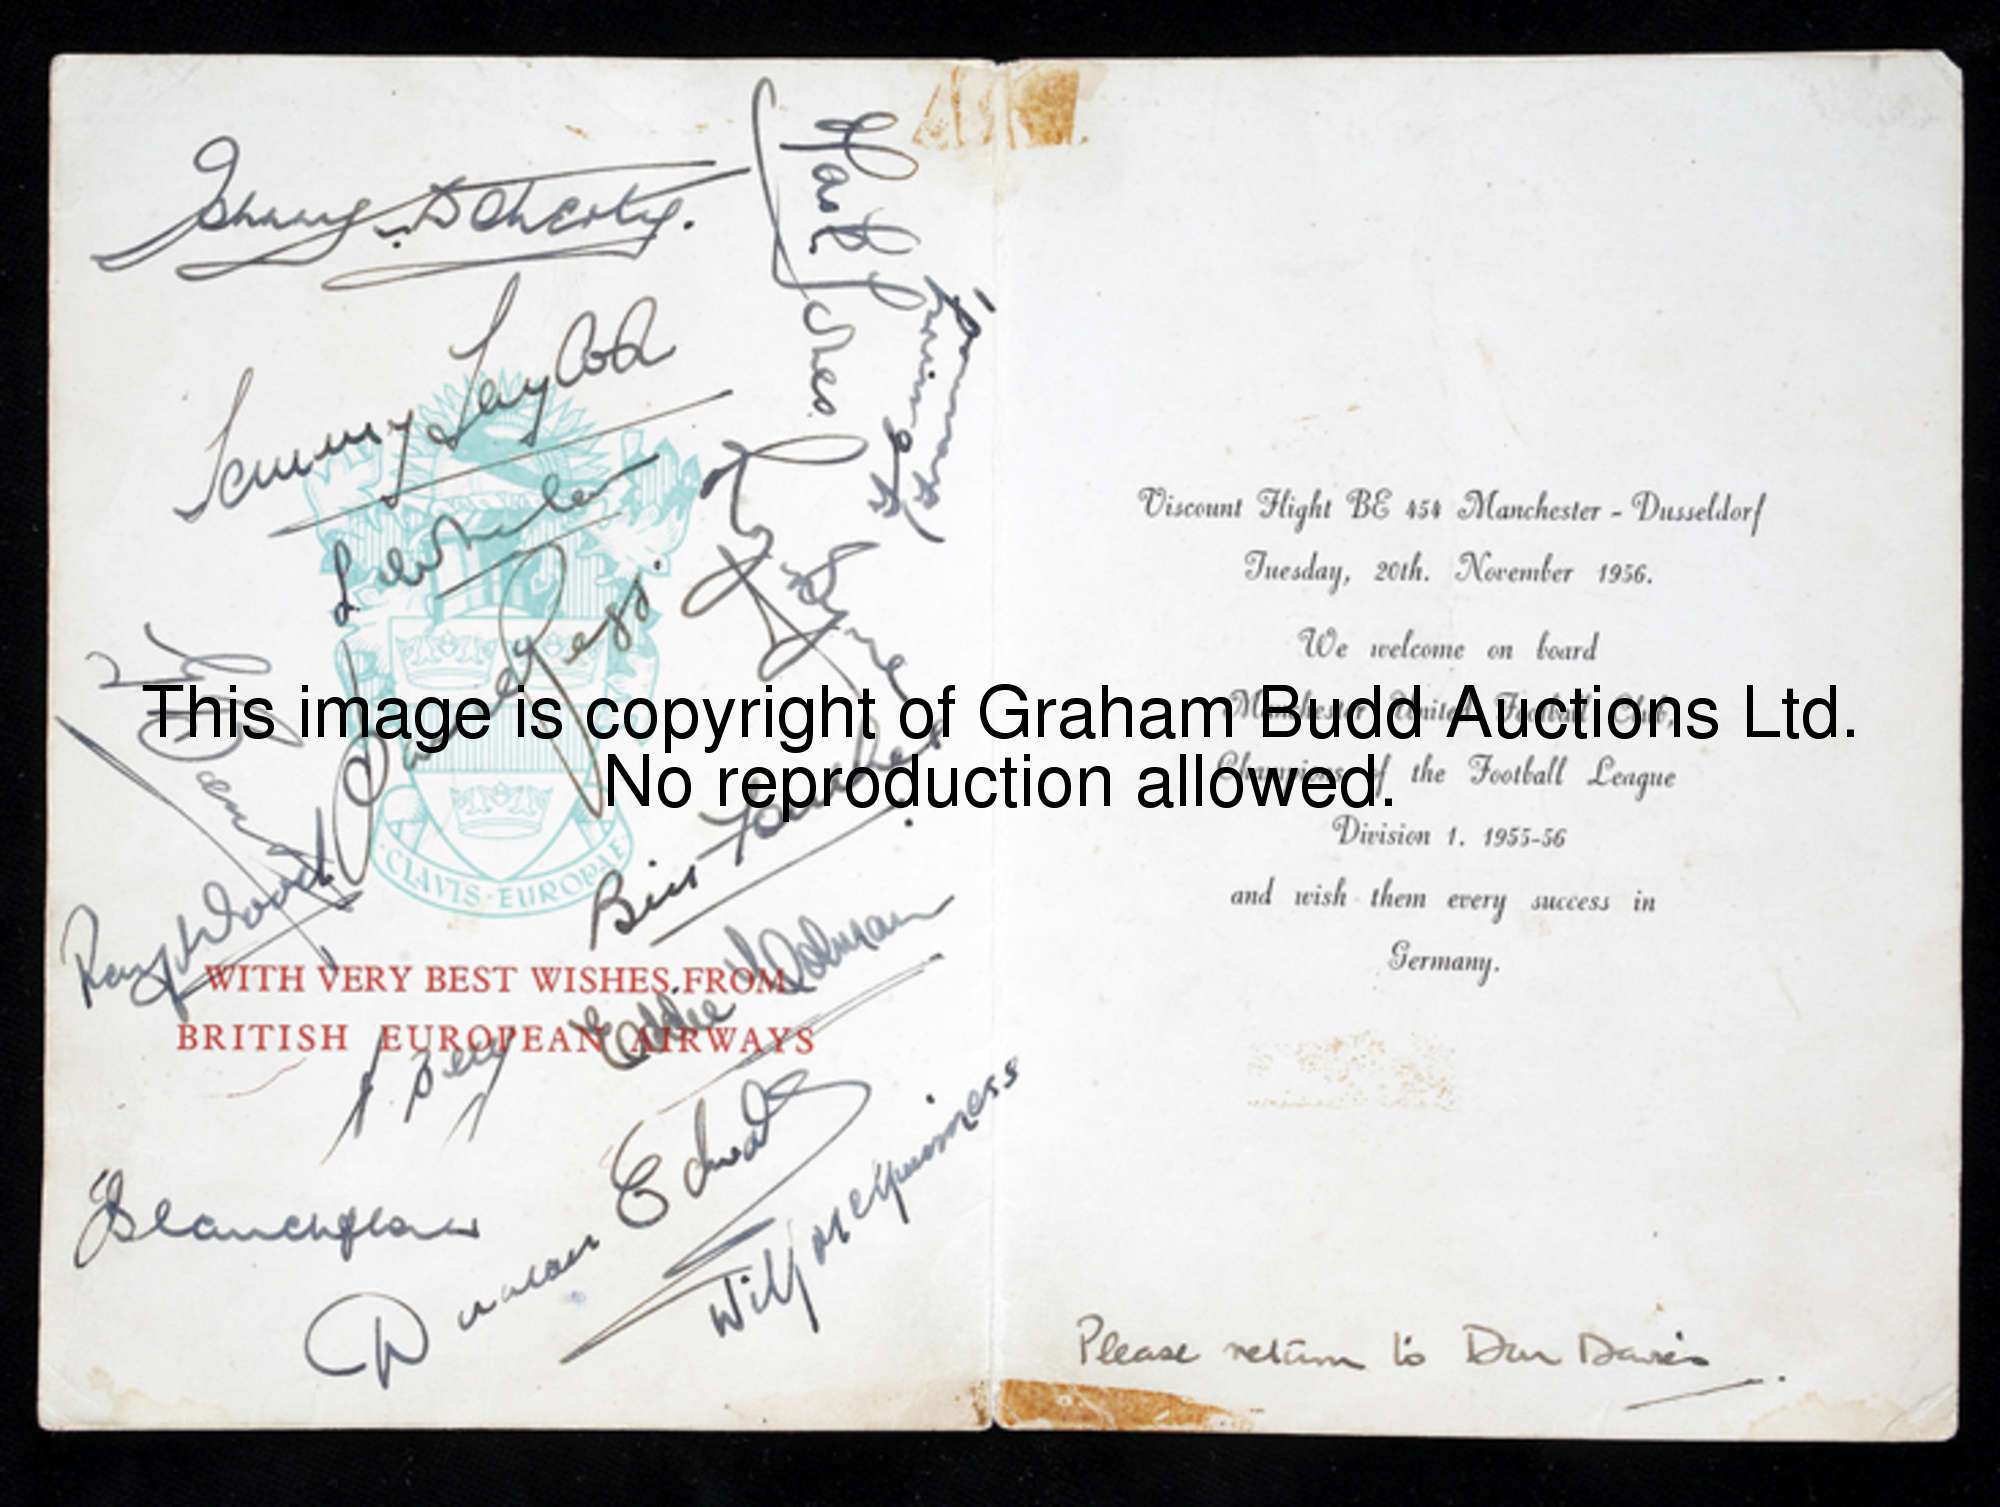 Johnny Doherty.
Mark Jones
Tommy Taylor
L. Whelan
David Pegg.
Roger Byrne
Ray Wood
Bill Foulkes
WITH VERY BEST WISHES FROM
BRITISH EUROPEAN AIRWAYS
CLAVIS · EUROPAE
J. Berry
Eddie Colman
Blanchflower
Duncan Edwards
Wilf McGuinness
Viscount Flight BE 454 Manchester - Dusseldorf
Tuesday, 20th. November 1956.
We welcome on board
Manchester United Football Club,
Champions of the Football League
Division 1. 1955-56
and wish them every success in
Germany.
Please return to Dan Davies.
This image is copyright of Graham Budd Auctions Ltd.
No reproduction allowed.